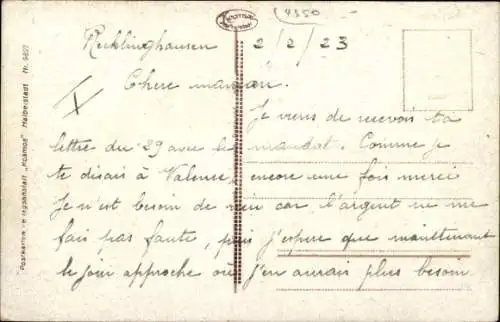 Kosmos
4350
Recklinghausen 2/2/23
Chere maman.
Je viens de recevoir ta
lettre du 29 avec le mandat. Comme je
te disais à Valence, encore une fois merci
Je n'est besoin de rien car l'argent ne me
fais pas faute, puis j'espere que maintenant
le jour approche où j'en aurais plus besoin.
X
Postkarten-Verlagsanstalt „Kosmos" Halberstadt Nr.